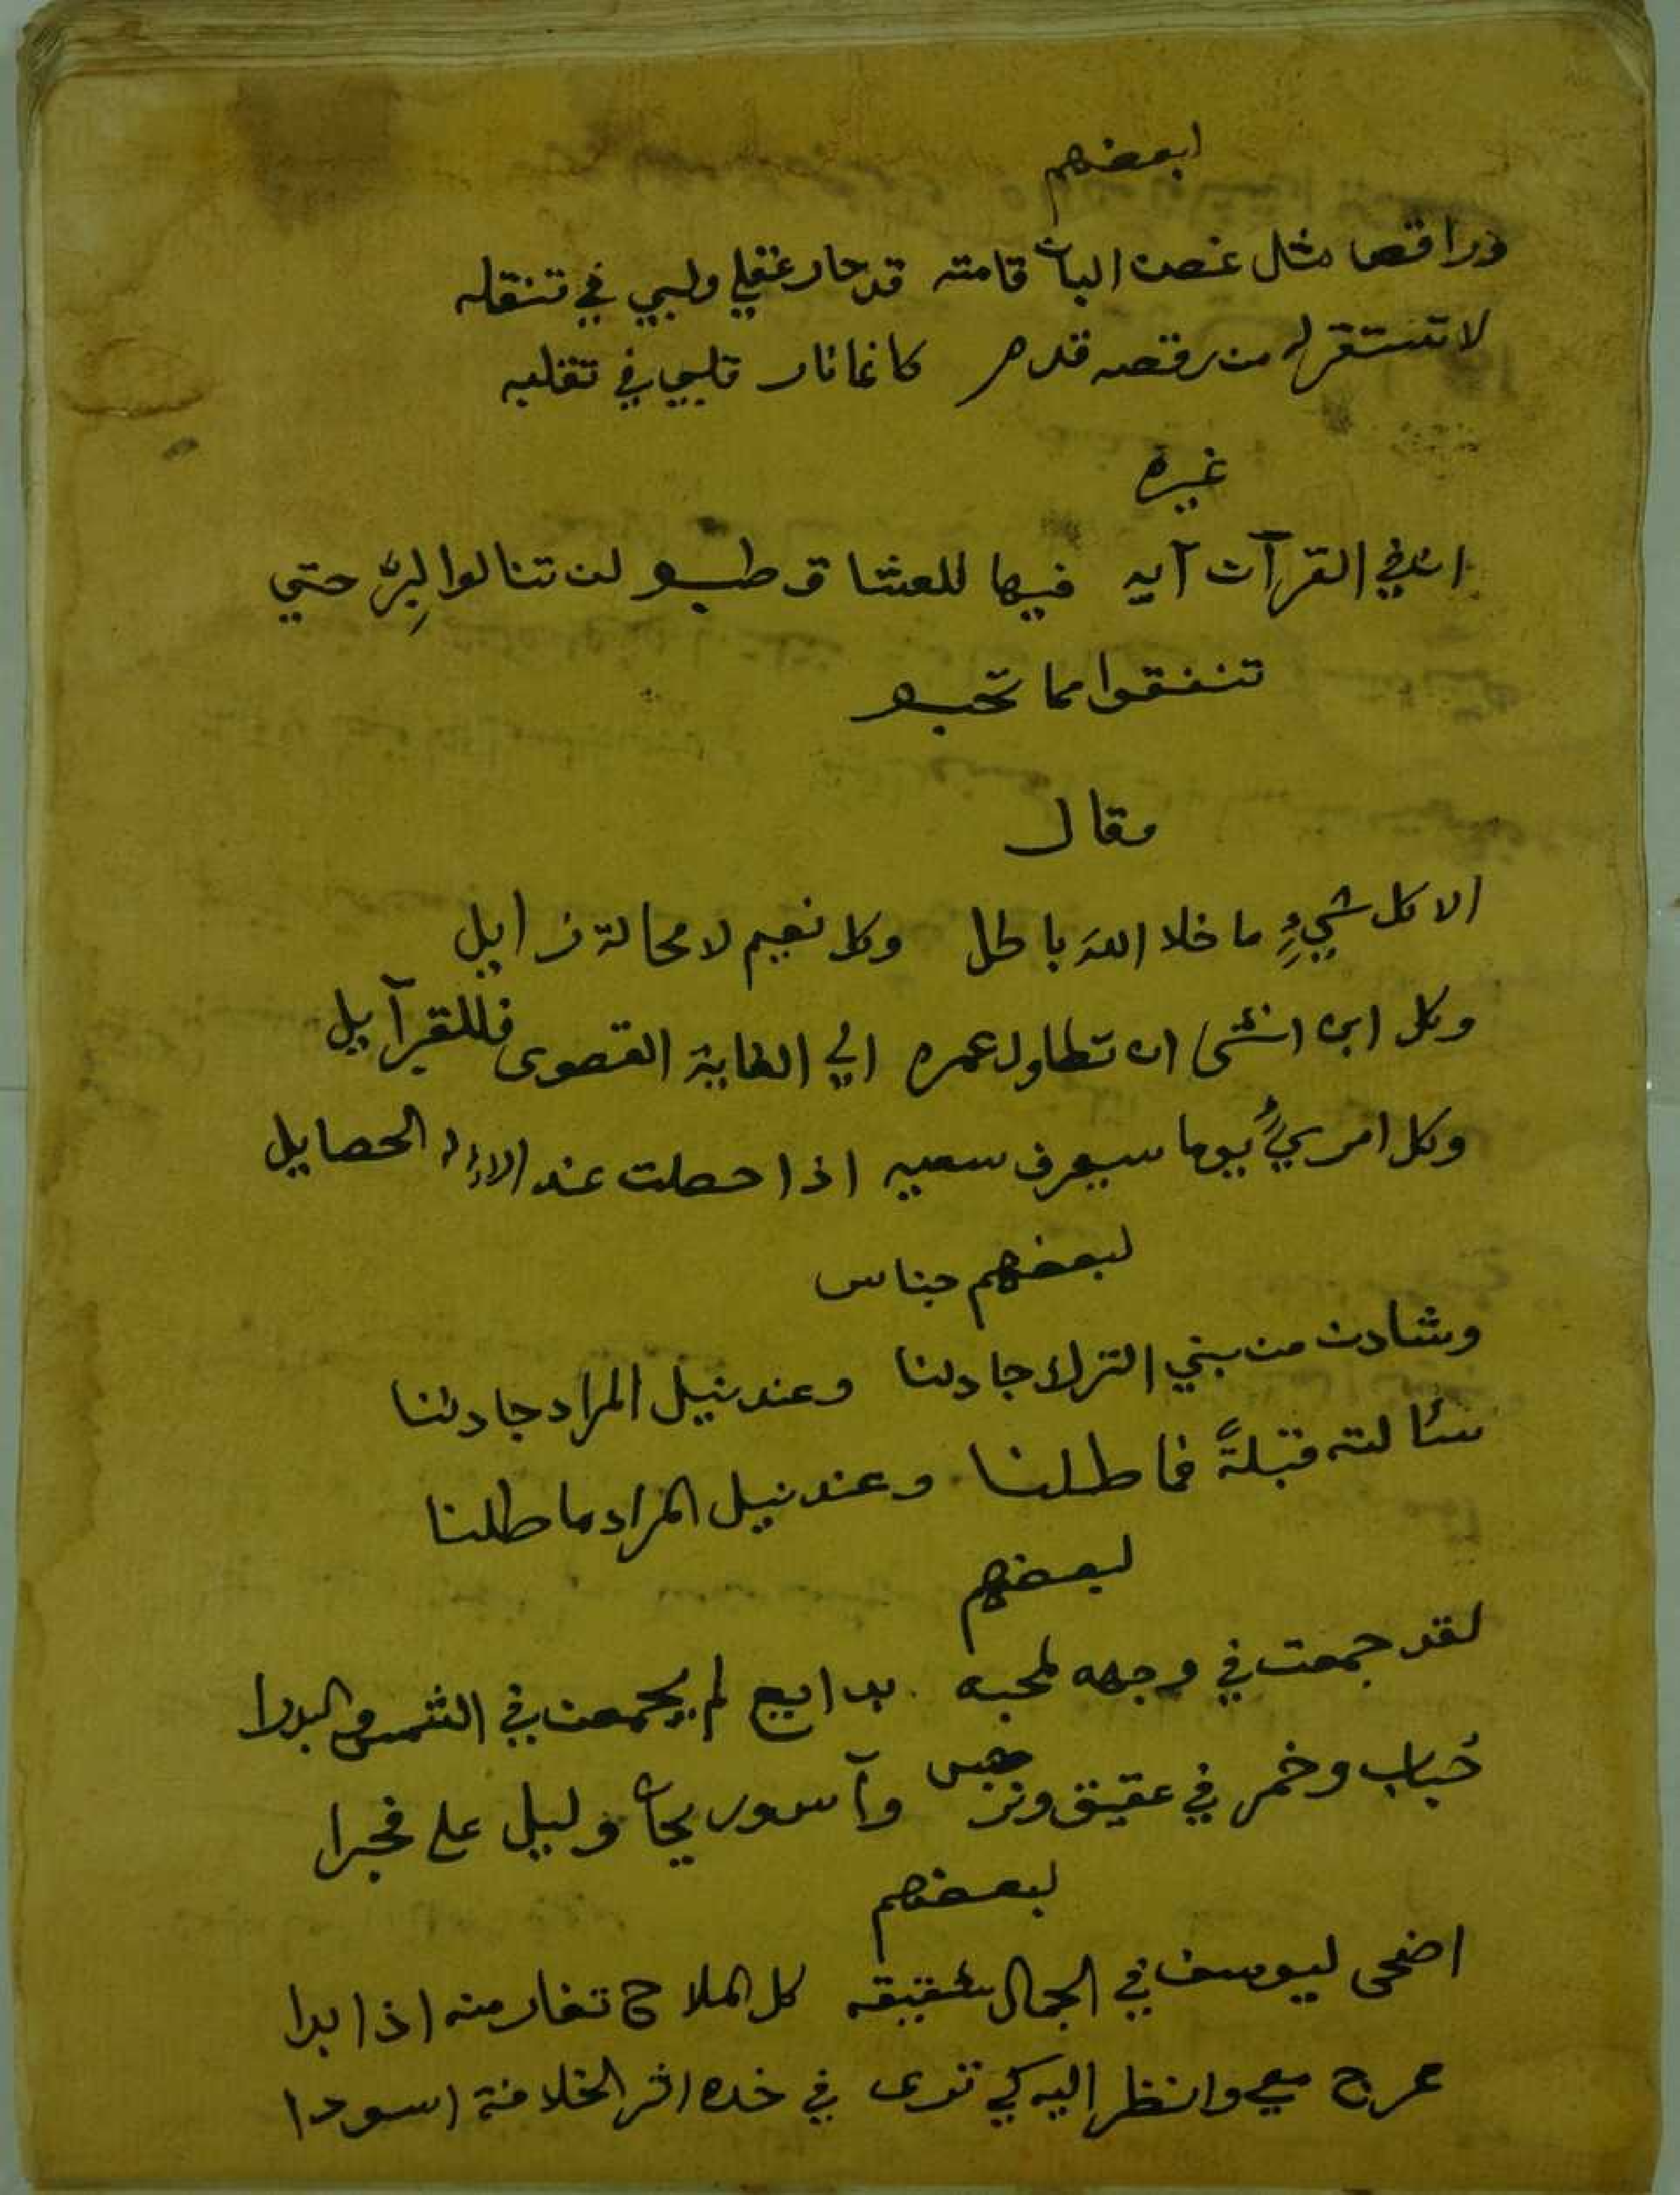 لبعضهم
وراقص مثل غصن البان قامته قد حار عقلي ولبي في تنقله
لا تستقر له من رقصه قدم كانما نار قلبي في تقلبه
غيره
ان في القرآن آيه فيها للعشاق طبو لن تنالوا البِرَّ حتي
تنفقوا مما تحبو
مقال
الا كل شيءٍ ما خلا اللهَ باطل وكل نعيم لا محالة زايل
وكل ابن انثى ان تطاول عمره الي الغاية القصوى فللقبر آيل
وكل امريءٍ يوما سيعرف سعيه اذا حصلت عند الاله الحصايل
لبعضهم جناس
وشادن من بني الترك جادلنا وعند نيل المراد جادلنا
سئالته قبلةً فماطلنا وعند نيل المراد ماطلنا
لبعضهم
لقد جمعت في وجهه لمحبه بدايع لم يجمعن في الشمس والبدرا
حُباب وخمر في عقيق ونرجس وآس وريحان وليل علي فجرا
لبعضهم
اضحى ليوسف في الجمال شقيقه كل الملاح تغار منه اذا بدا
عرج معي وانظر اليه كي ترى في خده اثر الخلافة اسودا